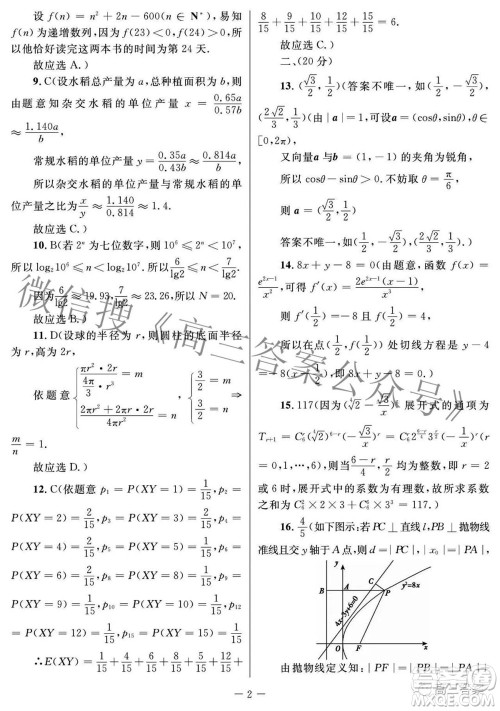 设 f(n) = n² + 2n − 600(n ∈ N*)，易知
f(n) 为递增数列，且 f(23) < 0，f(24) > 0，所
以他恰好读完这两本书的时间为第 24 天．
故应选 C.)
9. C(设水稻总产量为 a，总种植面积为 b，则
由题意知杂交水稻的单位产量 x = 0.65a/0.57b
≈ 1.140a/b，
常规水稻的单位产量 y = 0.35a/0.43b ≈ 0.814a/b，
所以杂交水稻的单位产量与常规水稻的单位产
量之比为 x/y ≈ 1.140/0.814 ≈ 1.4.
故应选 C.)
10. B(若 2ⁿ 为七位数字，则 10⁶ ≤ 2ⁿ < 10⁷，
所以 log₂10⁶ ≤ n < log₂10⁷，即 6/lg2 ≤ n < 7/lg2.
因为 6/lg2 ≈ 19.93，7/lg2 ≈ 23.26，所以 N = 20.
故应选 B.)
11. D(设球的半径为 r，则圆柱的底面半径
为 r，高为 2r，
依题意 { πr²·2r/(4π/3·r³) = m, (2πr² + 2πr·2r)/4πr² = n, ∴ { 3/2 = m, 3/2 = n, ∴
m/n = 1.
故应选 D.)
12. C(依题意 p₁ = P(XY = 1) = 1/15，p₂ =
P(XY = 2) = 2/15，p₃ = P(XY = 3) = 2/15，p₄ =
P(XY = 4) = 1/15，p₅ = P(XY = 5) = 2/15，p₆ =
P(XY = 6) = 2/15，p₈ = P(XY = 8) = 1/15，p₉ =
P(XY = 9) = 1/15，p₁₀ = P(XY = 10) = 1/15，p₁₂ =
P(XY = 12) = 1/15，p₁₅ = P(XY = 15) = 1/15.
∴E(XY) = 1/15 + 4/15 + 6/15 + 4/15 + 10/15 + 12/15 +
8/15 + 9/15 + 10/15 + 12/15 + 15/15 = 6.
故应选 C.)
二、(20 分)
13. (√3/2, 1/2)(答案不唯一，如(1/2, −√3/2)，
(√3/2, 1/2))(由 | a | = 1，可设 a = (cosθ, sinθ)，θ ∈
[0, 2π)，
又向量 a 与 b = (1, −1) 的夹角为锐角，
所以 cosθ − sinθ > 0. 不妨取 θ = π/6，
则 a = (√3/2, 1/2).
答案不唯一，如(1/2, −√3/2)，(√3/2, 1/2).)
14. 8x + y − 8 = 0(由题意，函数 f(x) =
e²ˣ⁻¹/x²，可得 f′(x) = 2e²ˣ⁻¹(x − 1)/x³，
则 f′(1/2) = −8，f(1/2) = 4，
所以在点(1/2, f(1/2))处切线方程是 y − 4 =
−8(x − 1/2)，即 8x + y − 8 = 0.)
展开式的通项为
为有理数，即 r = 2
或 r = 6 时，展开式中的系数为有理数，故所求系
16. 4/5(如下图示：若 PC⊥直线 l，PB⊥抛物线
准线且交 y 轴于 A 点，则 d = | PC |，| x₀ | = | PA |，
y² = 8x
4x−3y+6=0
B
A
C
P
O
F
x
由抛物线定义知：| PF | = | PB | = | PA | +
— 2 —
微信搜《高三答案公众号》